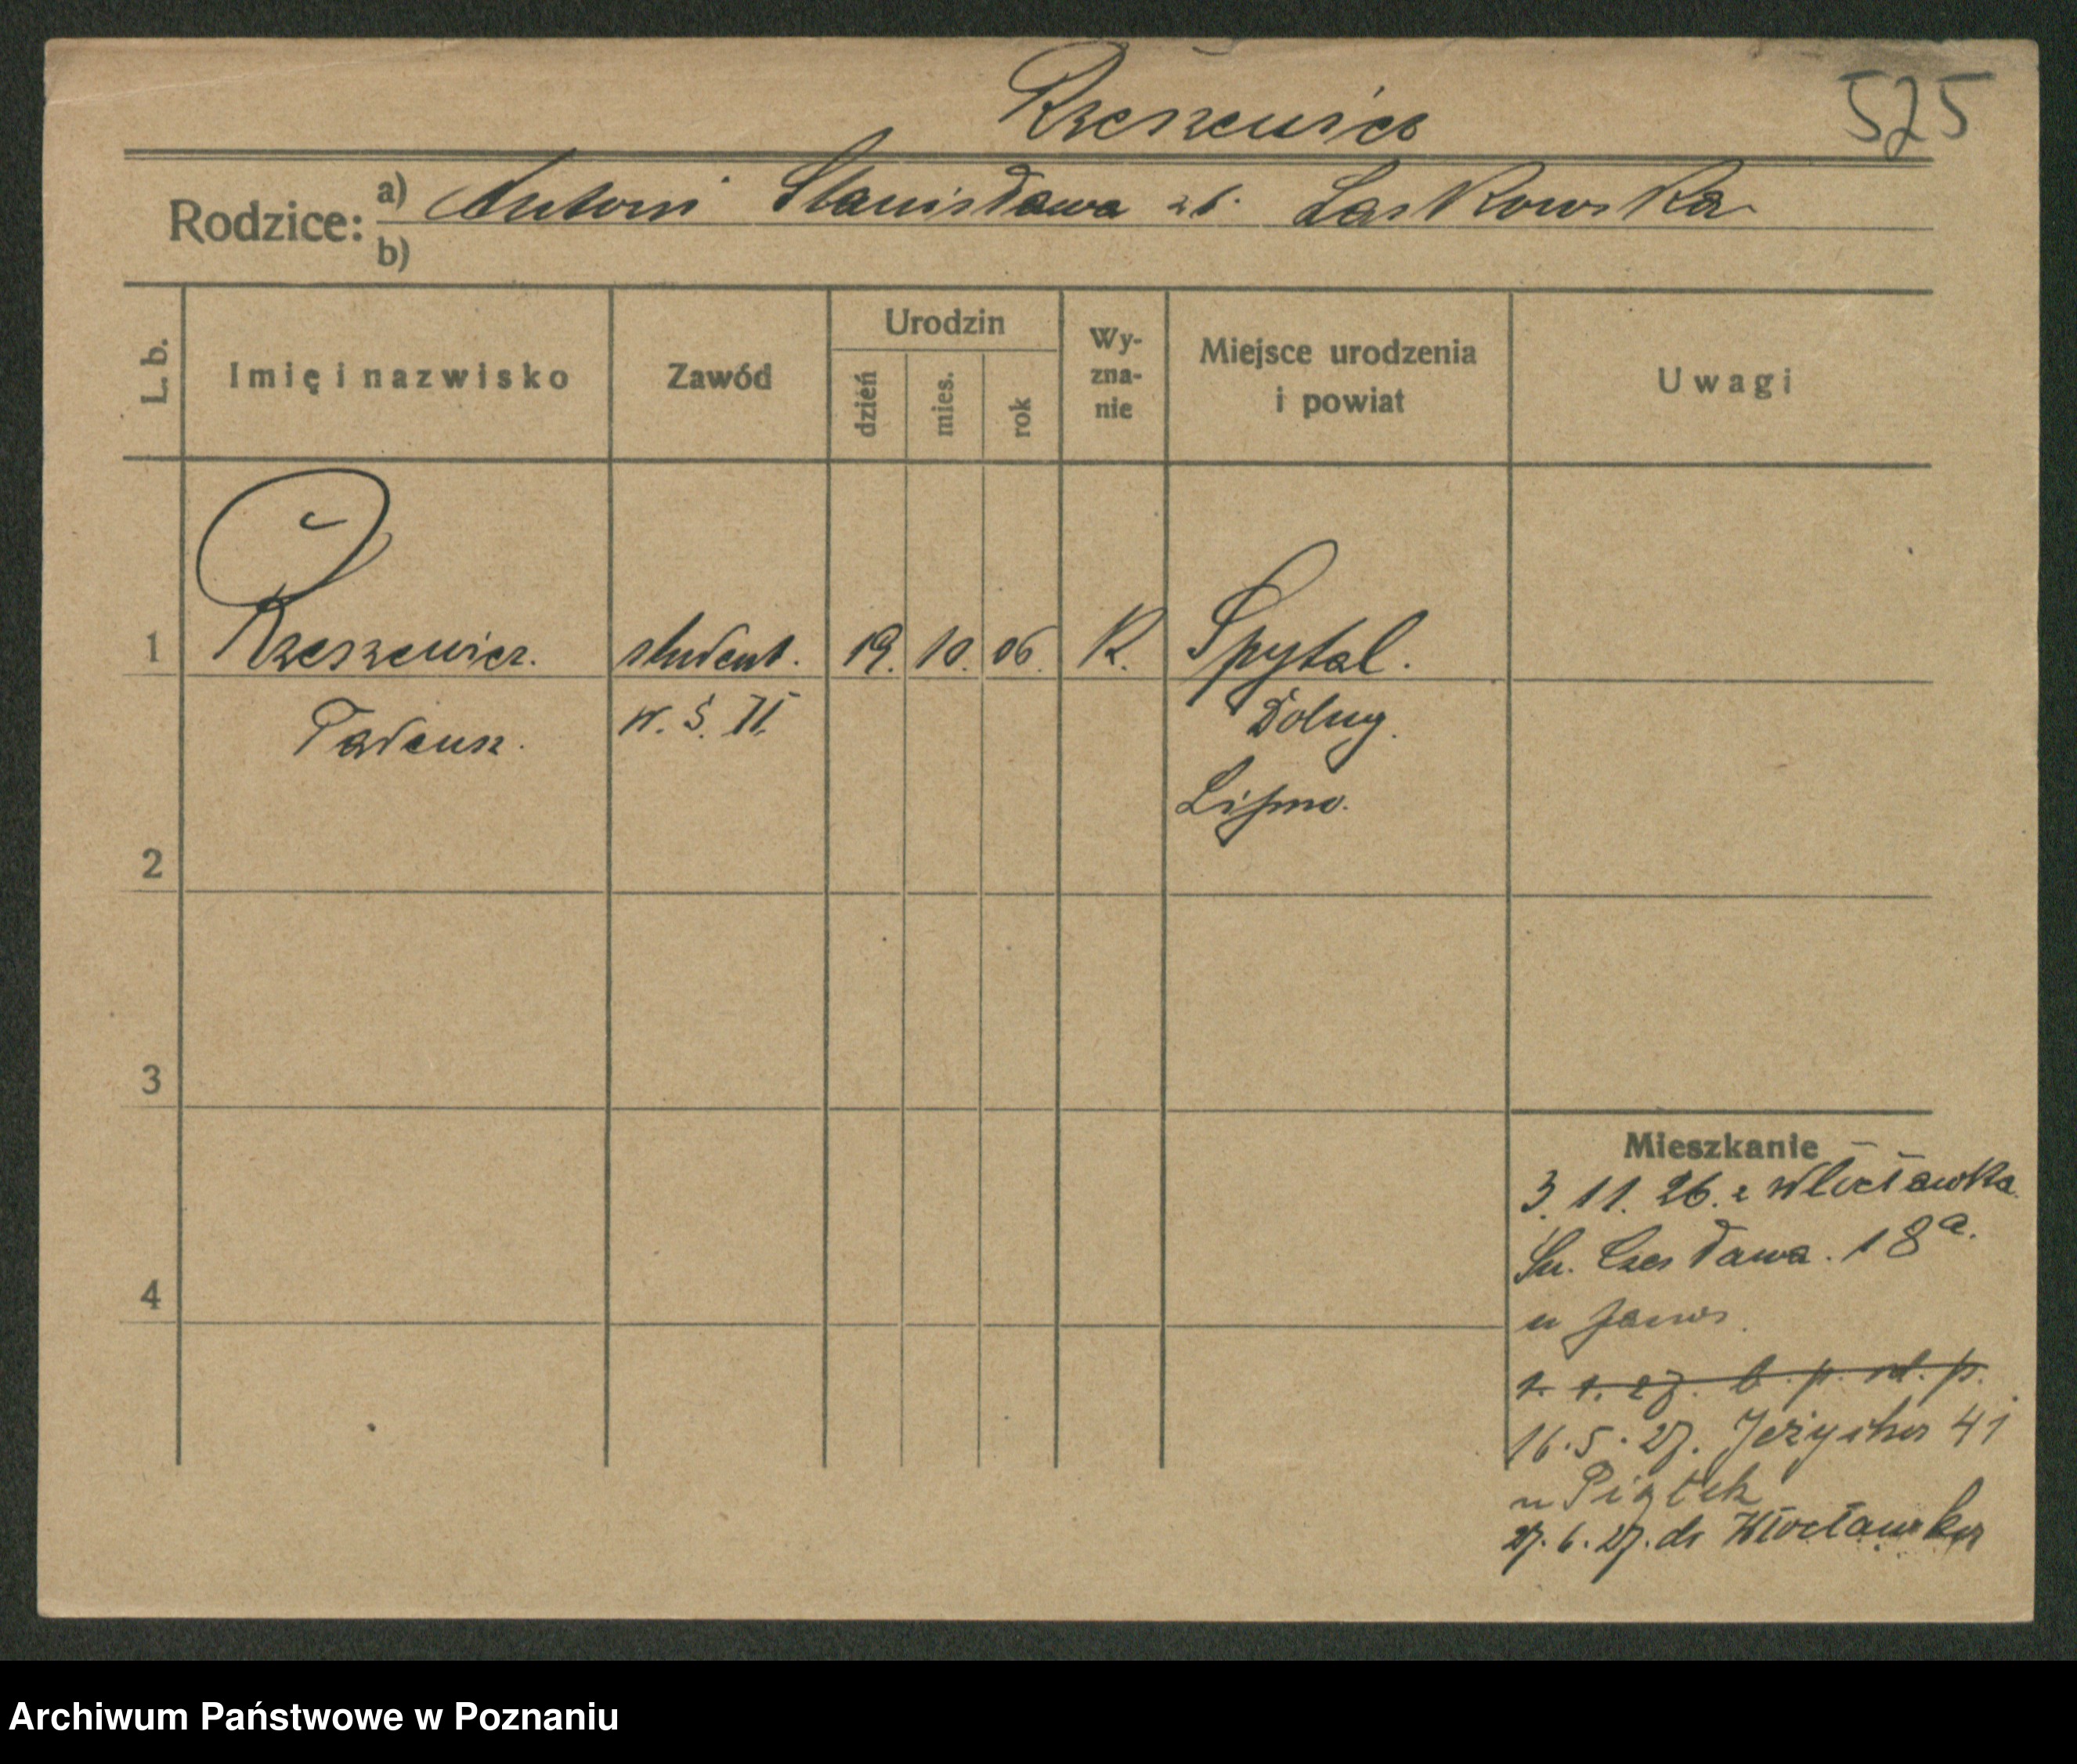 Rzeszewicz
525
Rodzice: a) Antoni Stanisława zd. Laskowska
b)
L. b.
Imię i nazwisko
Zawód
Urodzin
dzień
mies.
rok
Wy-
zna-
nie
Miejsce urodzenia
i powiat
Uwagi
1 Rzeszewicz. student. 19. 10. 06. K. Szpytal.
Tadeusz. W. S. H. Dolny.
Lipno.
2
3
4
Mieszkanie
3. 11. 26. z Włocławka
Św. Czesława. 18a.
u
1. 1. 27. b. p. w. p.
16. 5. 27. Jeżycka 41
u Piątek
27. 6. 27. do Włocławka
Archiwum Państwowe w Poznaniu